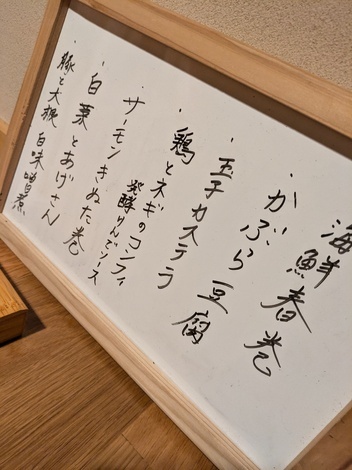 海鮮春巻
・かぶら豆腐
・玉子カステラ
・鶏とネギのコンフィ
発酵りんごソース
・サーモンきぬた巻
・白菜とあげさん
・豚と大根白味噌煮